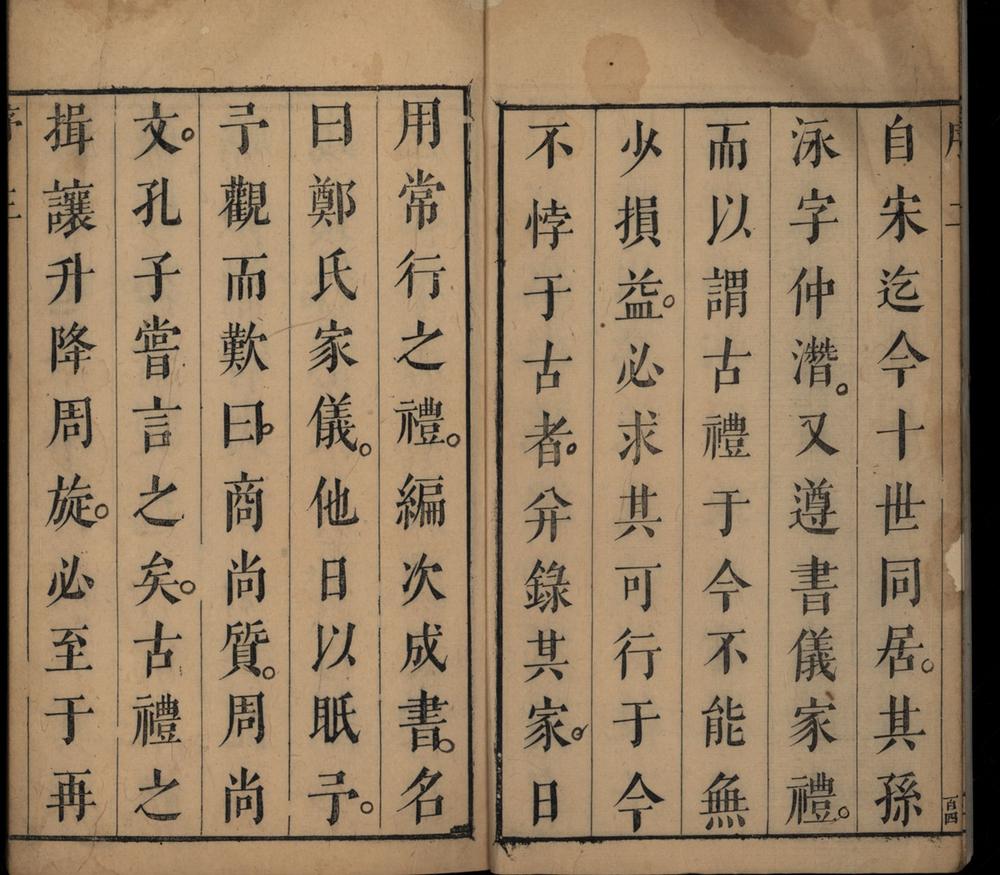 序 二
自宋迄今十世同居。其孫
泳字仲濳。又遵書儀家禮。
而以謂古禮于今不能無
少損益。必求其可行于今
不悖于古者。幷錄其家日
百四
用常行之禮。編次成書。名
曰鄭氏家儀。他日以眂予。
予觀而歎曰。商尚質。周尚
文。孔子嘗言之矣。古禮之
揖讓升降周旋。必至于再
序 三